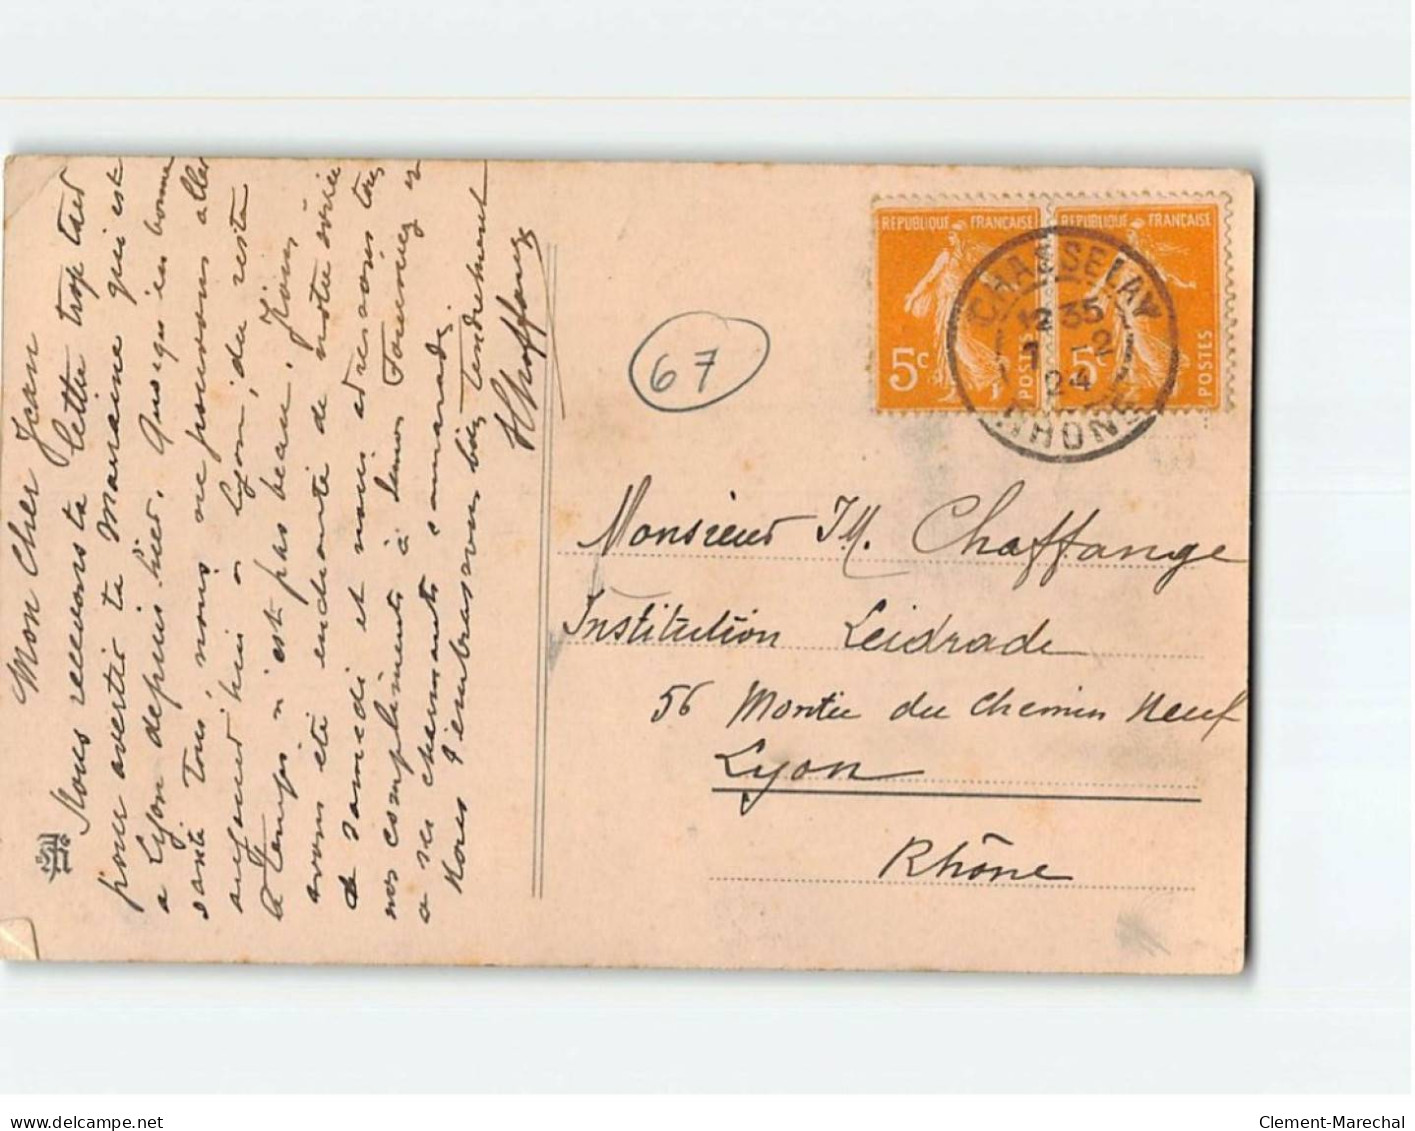 Mon Cher Jean
Nous recevons ta lettre trop tard
pour avertir ta Marraine qui est
a Lyon depuis hier. Quoique en bonne
santé tous nous ne pouvons aller
aujourd'hui a Lyon, du reste
le temps n'est pas beau. Nous
avons été enchanté de notre soirée
de samedi et nous adressons tous
nos compliments à Fournier et
a ses charmants camarades.
Nous t'embrassons bien tendrement
Chaffange
67
REPUBLIQUE FRANÇAISE
5c
POSTES
REPUBLIQUE FRANÇAISE
5c
POSTES
CHASSELAY
12 35
7 - 2
24
RHONE
Monsieur J M. Chaffange
Institution Leidrade
56 Montée du Chemin Neuf
Lyon
Rhône
delcampe.net
Clement-Marechal